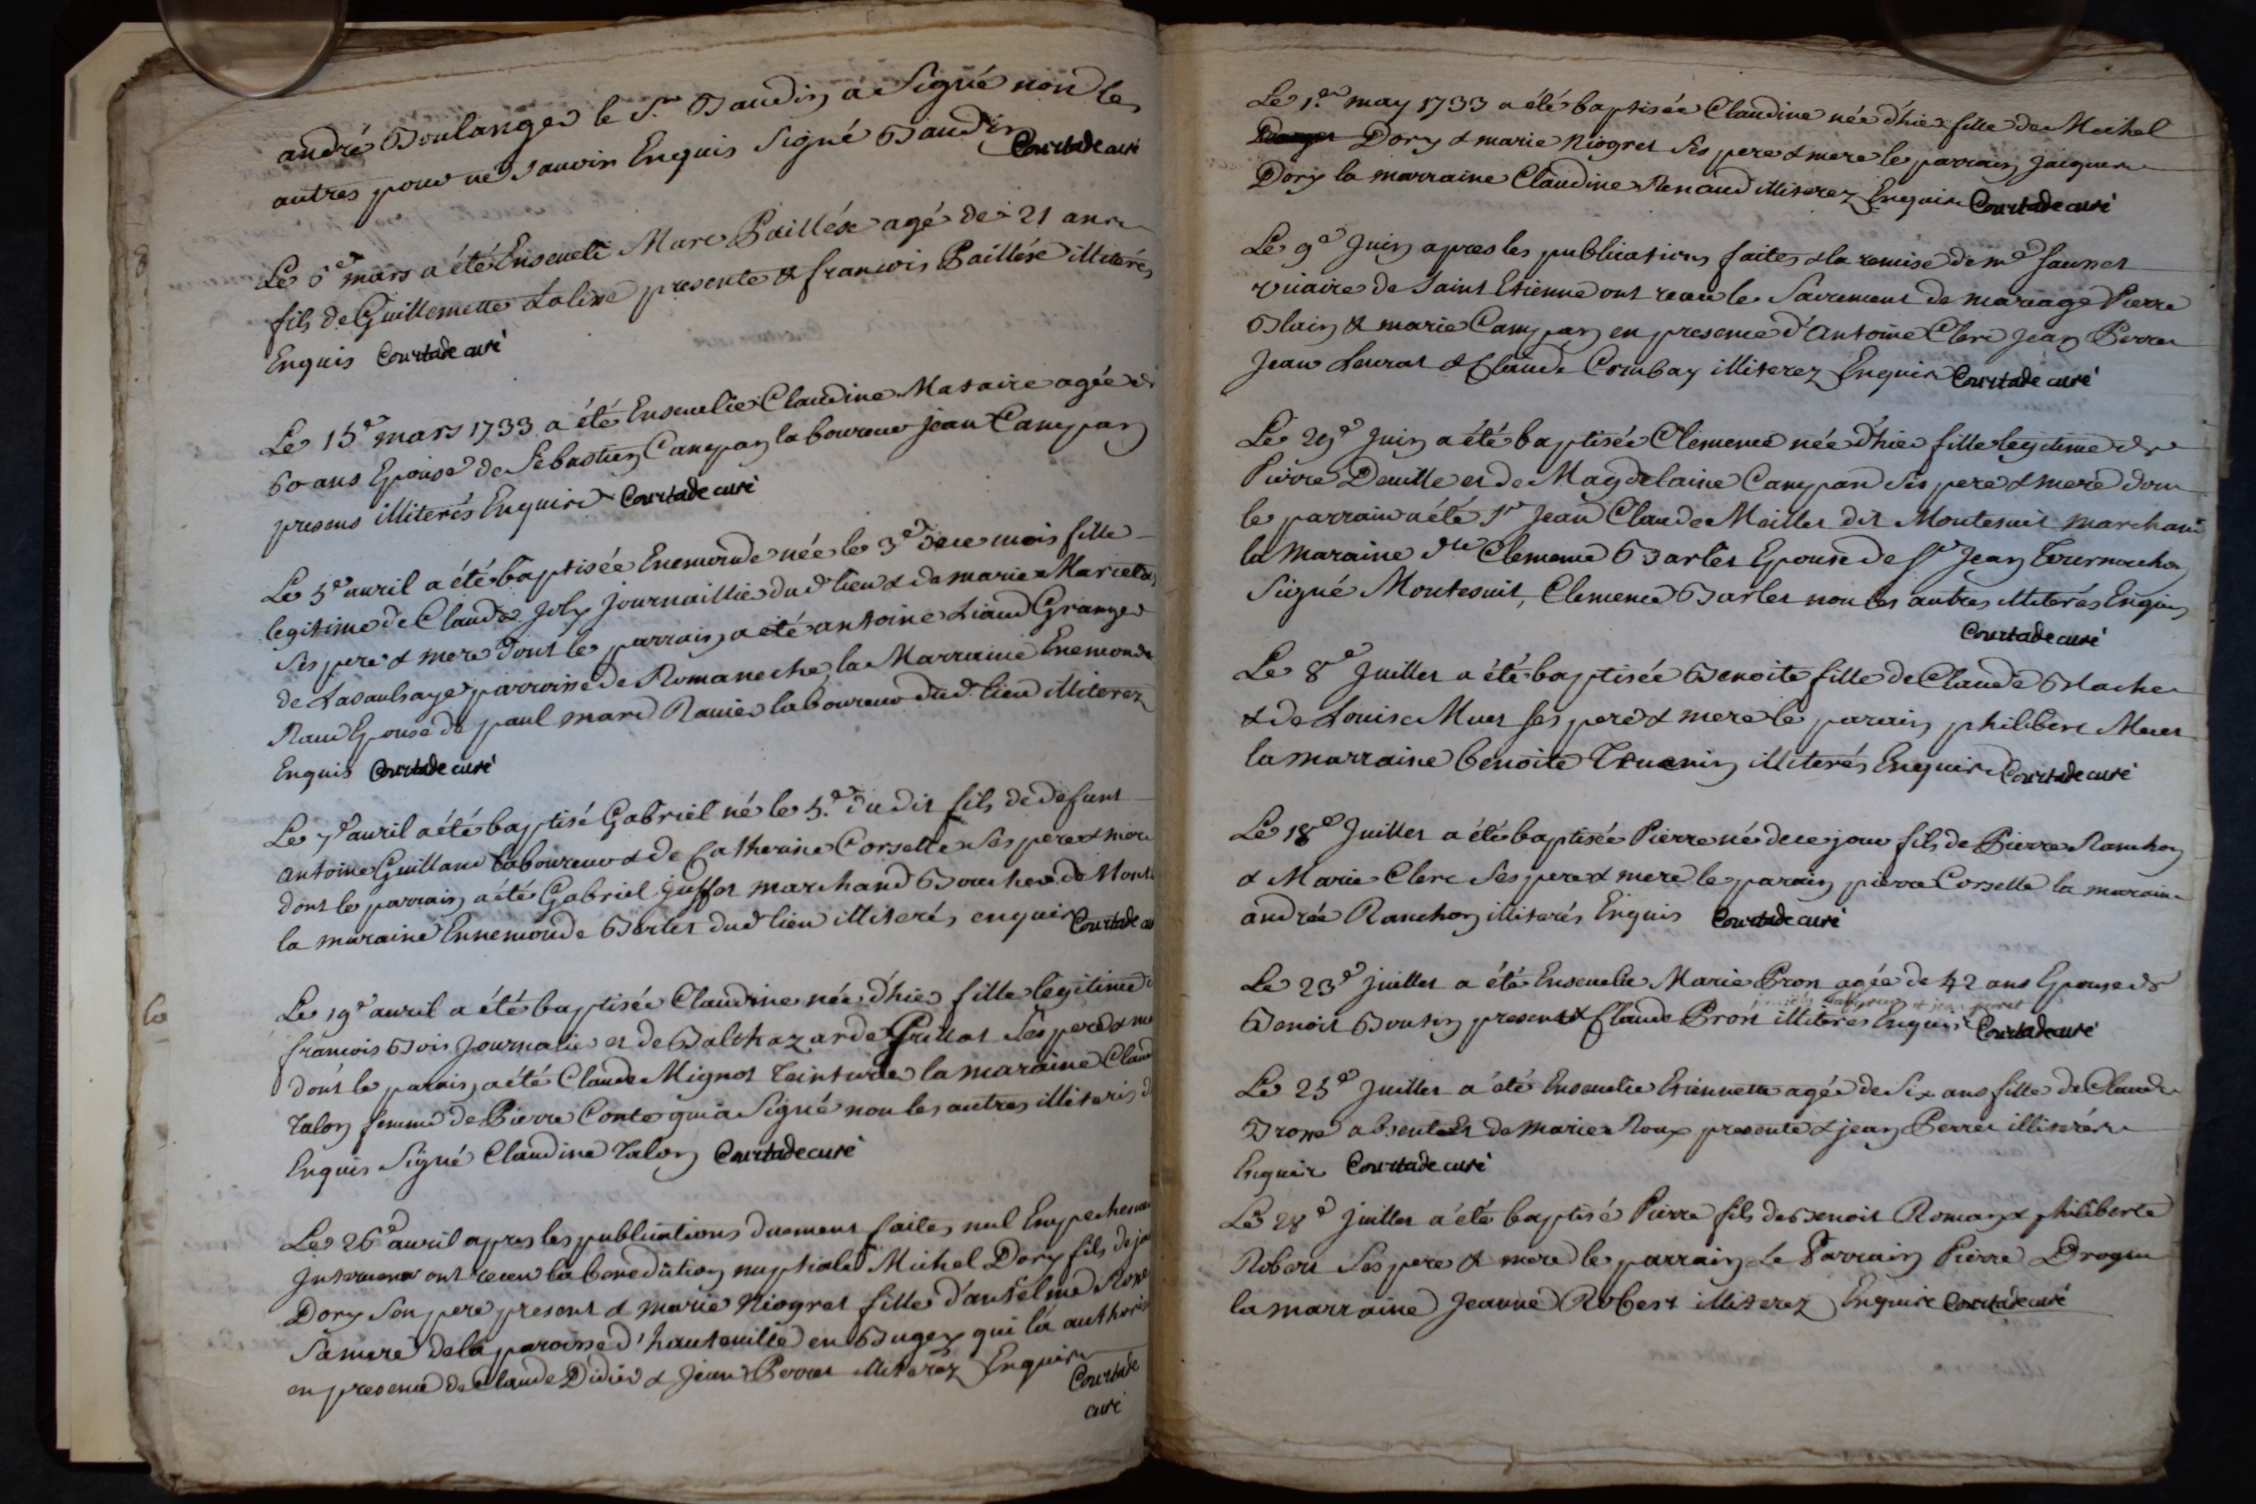 andré Boulanger le Sr. Baudin a Signé non les
autres pour ne Sauoir Enquis Signé Baudin Courtade curé
Le 6e mars a été Enseueli Marc Paillése agé de 21 ans
fils de Guillemette presente & francois Paillése illiterés
Enquis Courtade curé
Le 15e mars 1733 a été Enseuelie Claudine Mataire agée de
60 ans Epouse de Sebastien Campan laboureur jean Campan
presens illiterés Enquise Courtade curé
Le 5e auril a été baptisée Enemonde née le 3e de ce mois fille
legitime de Claude Joly Journaillie dud lieu & de marie
Ses pere & mere dont le parrain a été antoine Liaud Granger
de Lasaulsaye parroisse de Romaneche la Marraine Enemonde
Raud Epouse de paul marc Rauier laboureur dud. lieu illiterez
Enquis Courtade curé
Le 7e auril a été baptisé Gabriel né le 5.e dudit fils de defunt
antoine Guilland laboureur & de Catherine Corsette Ses pere & mere
dont le parrain a été Gabriel Guffot marchand Boucher de Mont
la maraine Ennemonde Berlet dud lieu illiterés enquis Courtade
Le 19e auril a été baptisée Claudine née d'hier fille legitime
francois Bois Journalie et de Balthazarde Grillat Ses pere & me
dont le parain a été Claude Mignot Teinturie la maraine Claud
Talon femme de Pierre Conte qui a Signé non les autres illiteris
Enquis Signé Claudine Talon Courtade curé
Le 26e auril apres les publications duement faites nul Empechement
Interuenu ont receu la benediction nuptiale Michel Dory fils de ja
Dory Son pere present & marie Niogret fille d'anselme
Sa mere de la paroisse d'hauteuille en Bugey qui la authoris
en presence de Claude Didier & Jean Perret illiterez Enquis
Courtade
curé
Le 1.er may 1733 a été baptisée Claudine née d'hier fille de Michel
Dory & marie Niogret Ses pere & mere le parrain Jacques
Dory la marraine Claudine Renaud illiterez Enquis Courtade curé
Le 9e Juin apres les publications faites & la remise de mr Jaunet
vicaire de Saint Etienne ont receu le Sacrement de mariage Pierre
Blain & marie Campan en presence d'antoine Clerc Jean Perret
Jean Leurat & Claude Combay illiterez Enquis Courtade curé
Le 29e Juin a été baptisée Clemence née d'hier fille legitime de
Pierre Deuille et de Magdelaine Campan Ses pere & mere dont
le parrain a été Sr Jean Claude Meillet dit Montesuit marchand
la Maraine Dlle Clemence Barlet Epouse de Sr Jean Tournachon
Signé Montesuit, Clemence Barlet non les autres illiterés Enquis
Courtade curé
Le 8e Juillet a été baptisée Benoite fille de Claude Blache
& de Louise Muet Ses pere & mere le parain philibert Muet
la marraine benoite Truenin illiterés Enquis Courtade curé
Le 18e Juillet a été baptisée Pierre né de ce jour fils de Pierre Ranchon
& Marie Clerc Ses pere & mere le parain pierre Corsette la maraine
andrée Ranchon illiterés Enquis Courtade curé
Le 23e juillet a été Enseuelie Marie Bron agée de 42 ans Epouse de
Benoit Boutin present & Claude Bron illiterés Enquis Courtade curé
Le 25e Juillet a été Enseuelie Etiennette agée de Six ans fille de Claude
Drome absent & de marie Roux presente & jean Perret illiterés
Enquis Courtade curé
Le 28e juillet a été baptisé Pierre fils de Benoit Roman & philiberte
Robert Ses pere & mere le parrain Le Parrain Pierre Drogue
la marraine Jeanne Robert illiterez Enquise Courtade curé